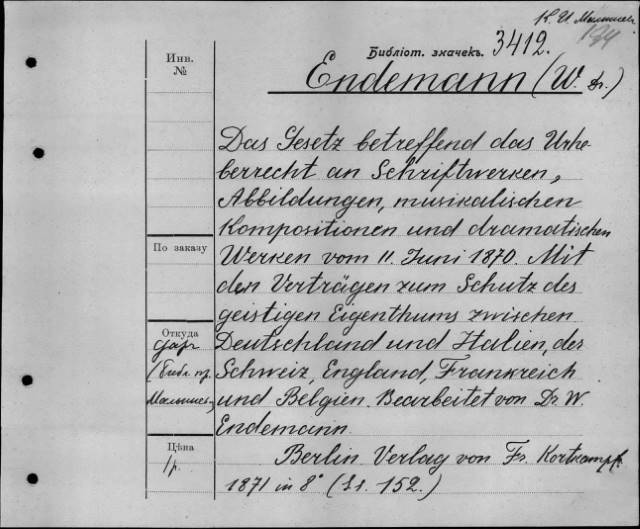 К. И. Малышев
Библіот. значекъ. 3412.
Инв.
№
Endemann (W. Dr.)
Das Gesetz betreffend das Urhe-
berrecht an Schriftwerken,
Abbildungen, musikalischen
Kompositionen und dramatischen
По заказу
Werken vom 11. Juni 1870. Mit
den Verträgen zum Schutz des
geistigen Eigenthums zwischen
Откуда
даръ
Deutschland und Italien, der
(Библ. пр.
Schweiz, England, Frankreich
Малышева
und Belgien. Bearbeitet von Dr. W.
Endemann.
Цѣна
1 р.
Berlin Verlag von Fr. Kortkampf.
1871 in 8° (Ss. 152.)